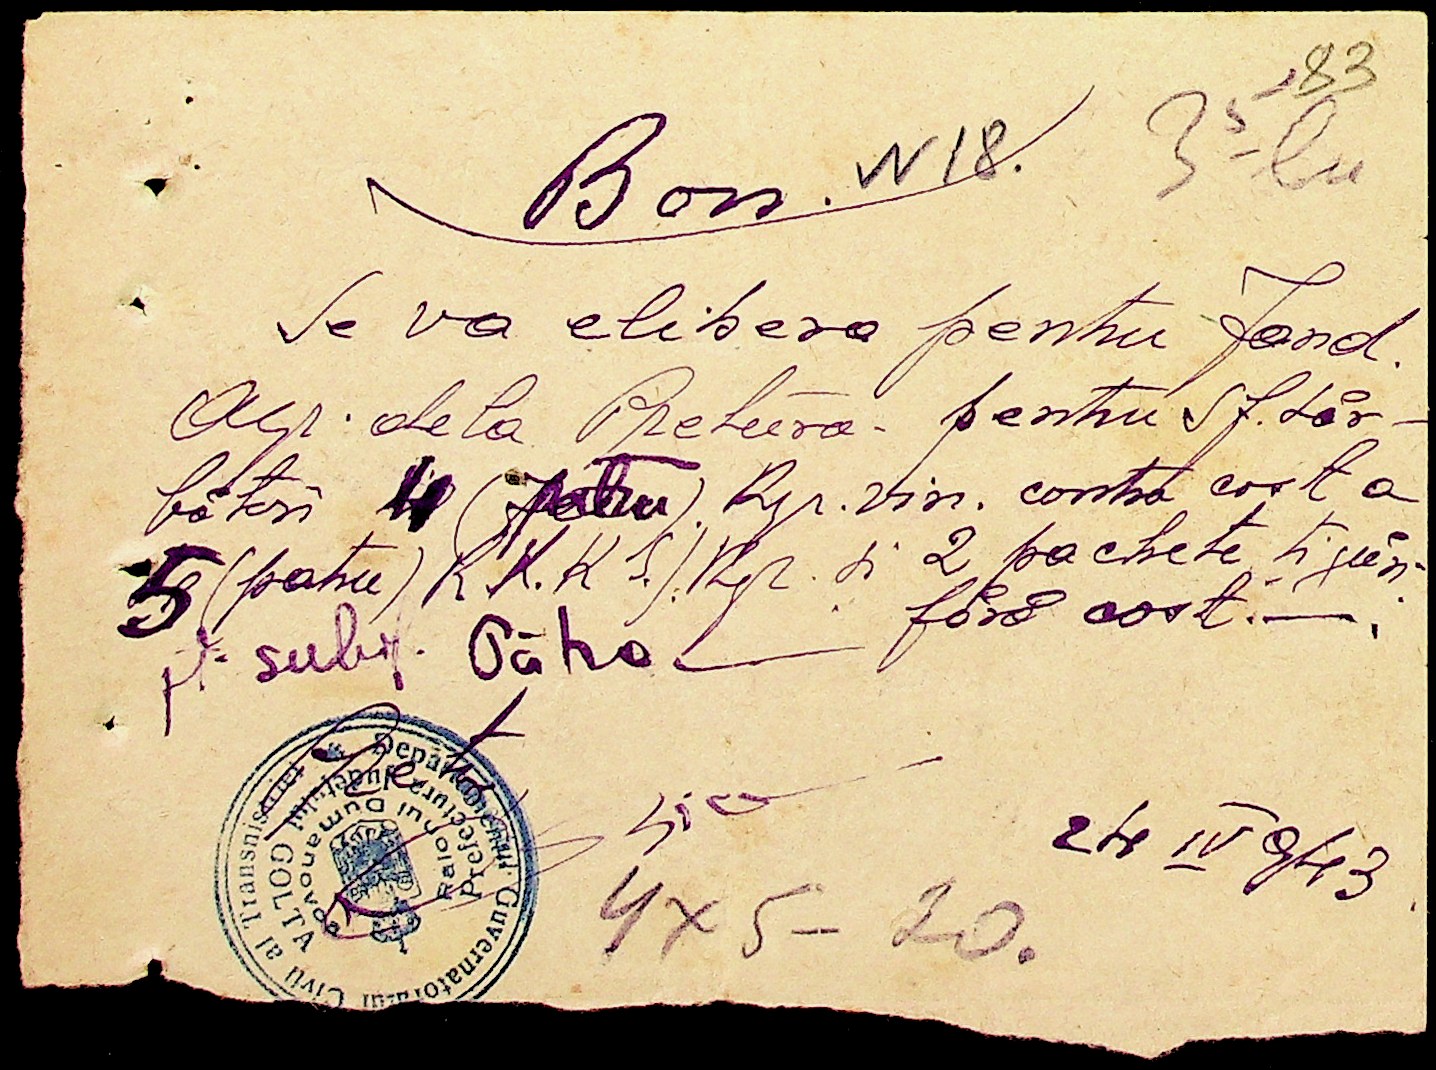 183
3 5 - lu
Bon. N 18.
Se va elibera pentru Jand.
Agr. dela Pretura - pentru Sf. săr-
bători 4 (patru). Kgr. vin. contra cost a
5 (patru) R.K.K.S. Kgr. și 2 pachete țigări
fără cost. —.
pt. subif. Pătra
Departamentul Guvernatorului Civil al Transnistriei
Prefectura Județului GOLTA
Raionul Dumanovca
24 IV 943
4 x 5 - 20.